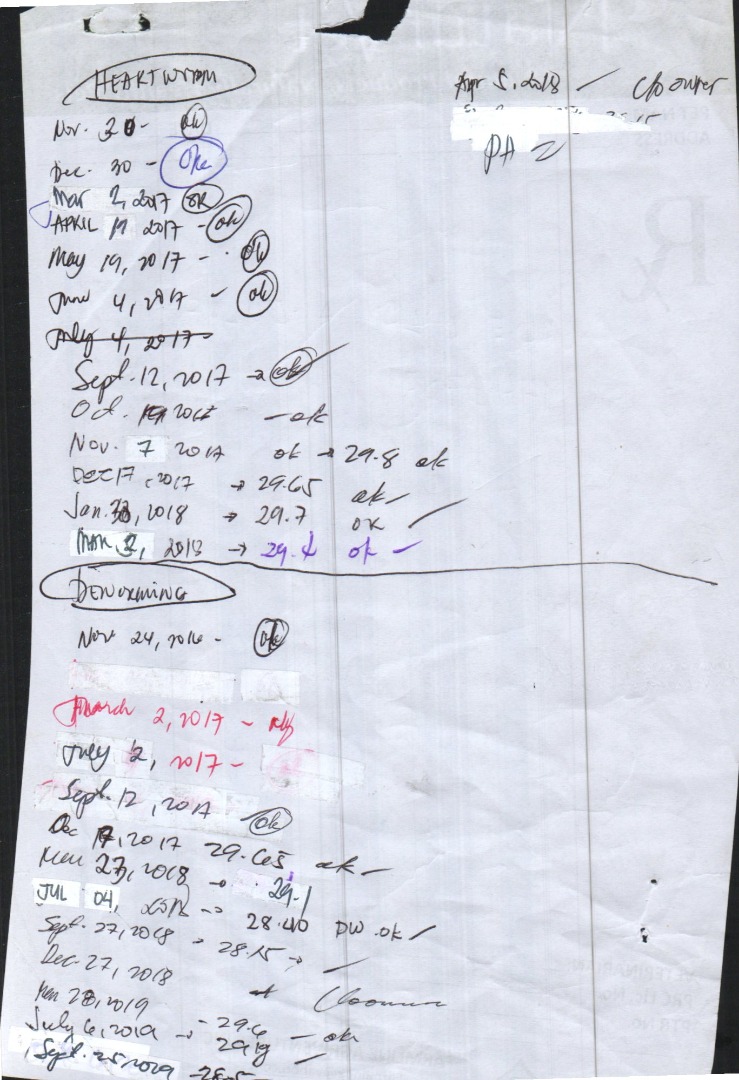 HEARTWORM
Nov. 30 - ok
Dec. 30 - Oke
Mar 2, 2017 OK
APRIL 17 2017 - ok
May 19, 2017 - ok
June 4, 2017 - ok
July 4, 2017
Sept. 12, 2017 → ok
Oct. 2017 - ok
Nov. 7 2017 ok → 29.8 ok
DEC 17, 2017 → 29.65 ok
Jan. 30, 2018 → 29.7 OK
MAR. 2, 2018 → 29.4 ok
Apr 5, 2018 - c/o owner
DEWORMING
Nov 24, 2016 - ok
March 2, 2017 -
July 2, 2017 -
Sept. 12, 2017 ok
Dec 17, 2017 29.65 ok
Mar 27, 2018 → 29.1
JUL 04, 2018 → 28.40 DW ok
Sept. 27, 2018 - 28.15 →
Dec. 27, 2018
Mar 28, 2019 - 29.6
July 6, 2019 → 29.19 - ok
Sept. 25 2019 - 28.5